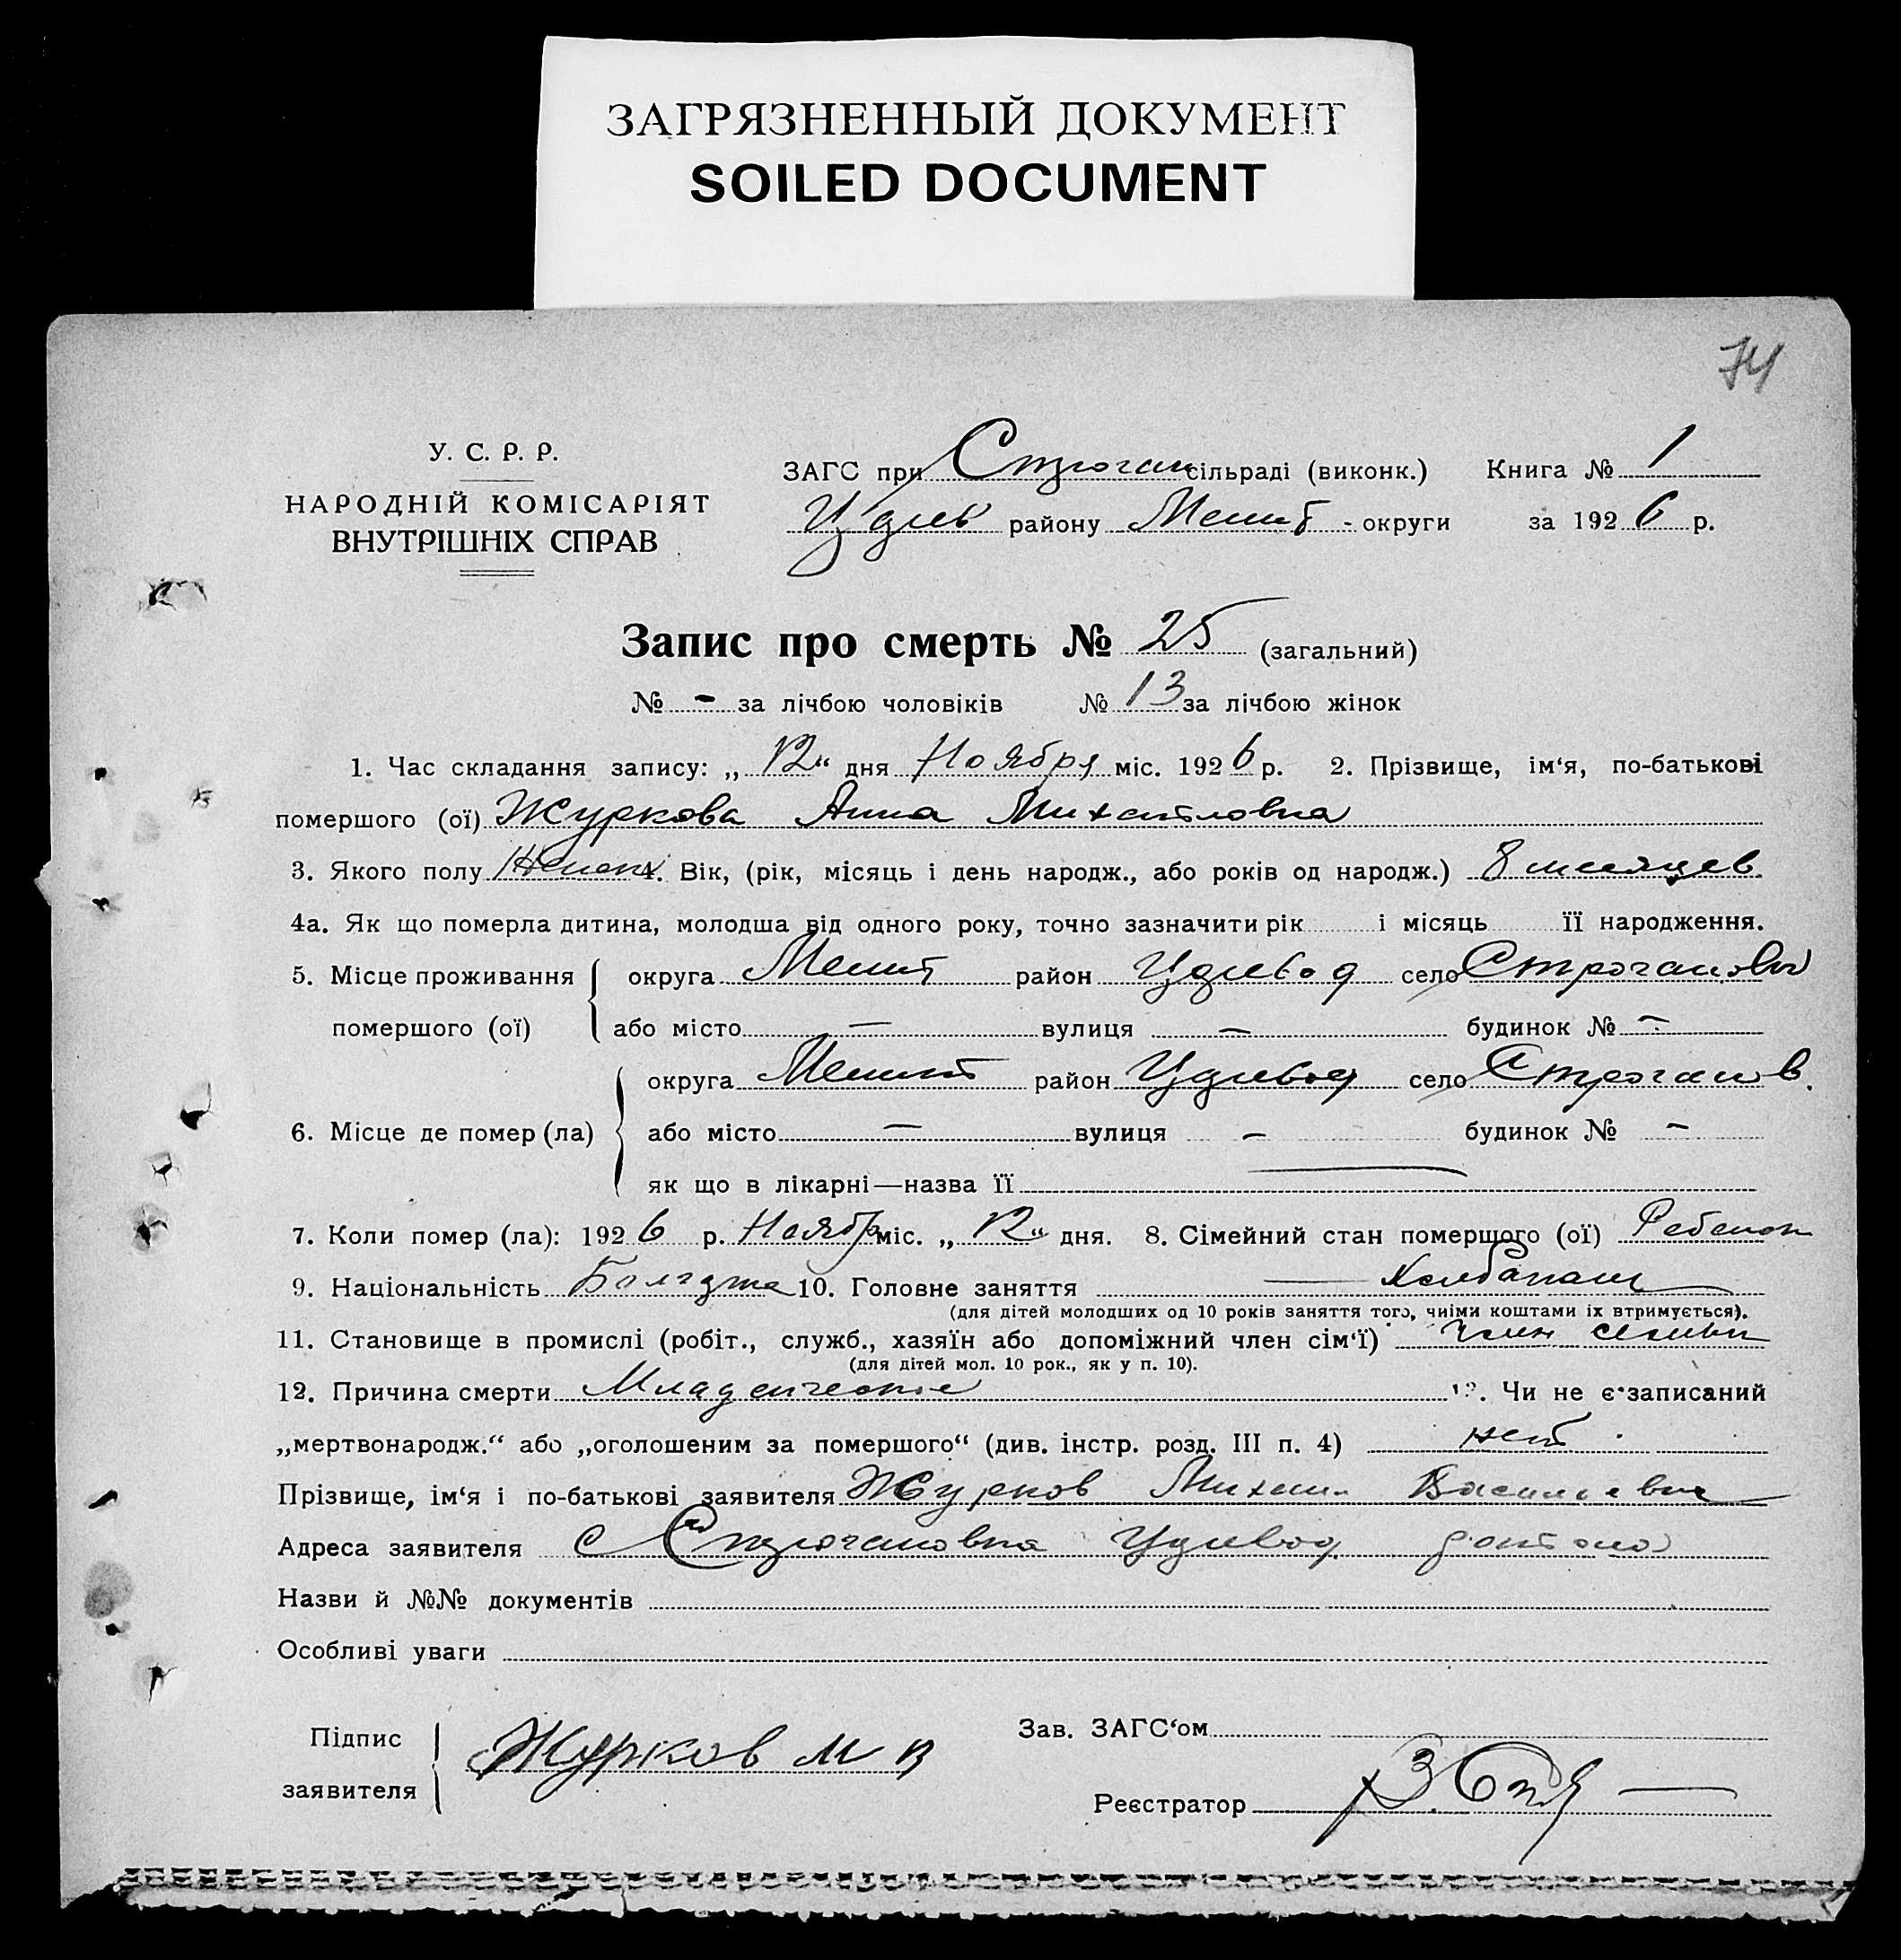 ЗАГРЯЗНЕННЫЙ ДОКУМЕНТ
SOILED DOCUMENT
74
У. С. Р. Р.
НАРОДНІЙ КОМІСАРІЯТ
ВНУТРІШНІХ СПРАВ
ЗАГС при Строган сільраді (виконк.) Книга № 1
району Мелит округи за 1926 р.
Запис про смерть № 25 (загальний)
№ - за лічбою чоловіків № 13 за лічбою жінок
1. Час складання запису: „12“ дня Ноября міс. 1926 р. 2. Прізвище, ім‘я, по-батькові
помершого (ої) Журкова Анна Михайловна
3. Якого полу Женск 4. Вік, (рік, місяць і день народж., або років од народж.) 8 месяцев
4а. Як що померла дитина, молодша від одного року, точно зазначити рік і місяць її народження.
5. Місце проживання округа Мелит район село Строгановка
помершого (ої) або місто — вулиця — будинок № —
округа Мелит район село Строганов.
6. Місце де помер (ла) або місто — вулиця — будинок № —
як що в лікарні—назва її —
7. Коли помер (ла): 1926 р. Ноябр міс. „12“ дня. 8. Сімейний стан помершого (ої) Ребенок
9. Національність Болгарка 10. Головне заняття — Хлебопаш
(для дітей молодших од 10 років заняття того, чиїми коштами їх втримується).
11. Становище в промислі (робіт., служб., хазяїн або допоміжний член сім‘ї) член семьи
(для дітей мол. 10 рок., як у п. 10).
12. Причина смерти Младенческое 13. Чи не є записаний
„мертвонародж.“ або „оголошеним за помершого“ (див. інстр. розд. III п. 4) нет
Прізвище, ім‘я і по-батькові заявителя Журков Михаил Васильевич
Адреса заявителя с Строгановка
Назви й №№ документів
Особливі уваги
Підпис
заявителя Журков М В
Зав. ЗАГС‘ом
Реєстратор